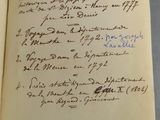 de St Dizier à Nancy en 1777
par Leo Denis
2. Voyage dans le département
de la Meurthe en 1792. par Joseph
Lavallée
3. Voyage dans le département
de la Meuse en 1792
4. statistique du département
de la Meurthe en X (1802)
par